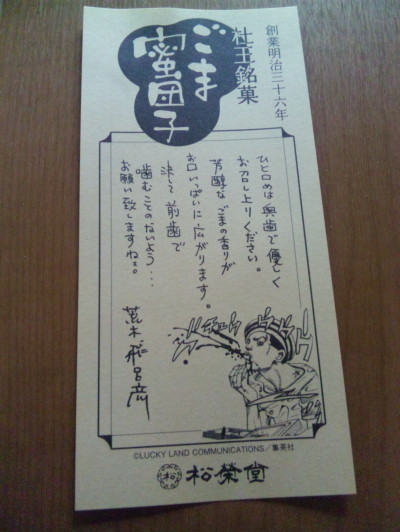 創業明治三十六年
杜王銘菓
ごま
蜜団子
ひと口めは奥歯で優しく
お召し上りください。
芳醇なごまの香りが
お口いっぱいに広がります。
決して前歯で
噛むことのないよう・・・
お願い致しますねェ。
荒木飛呂彦
©LUCKY LAND COMMUNICATIONS/集英社
松榮堂